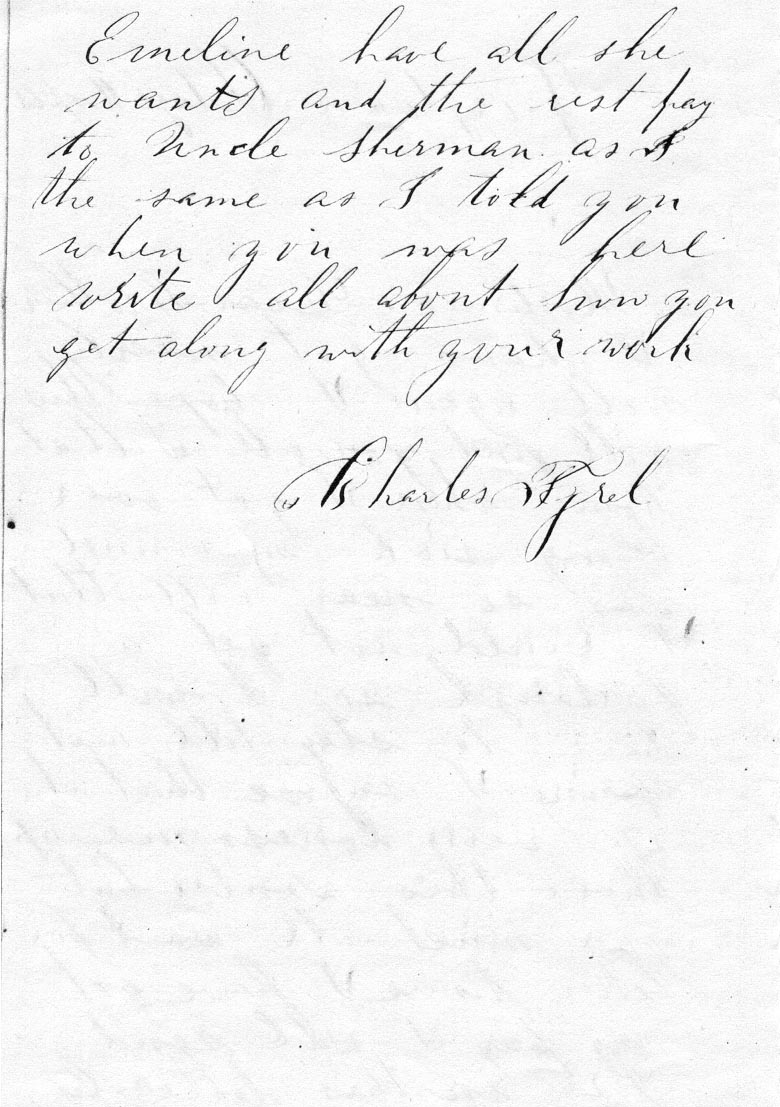 Emeline have all she
wants and the rest pay
to Uncle Sherman as I
the same as I told you
when you was here
write all about how you
get along with your work
Charles Tyrel